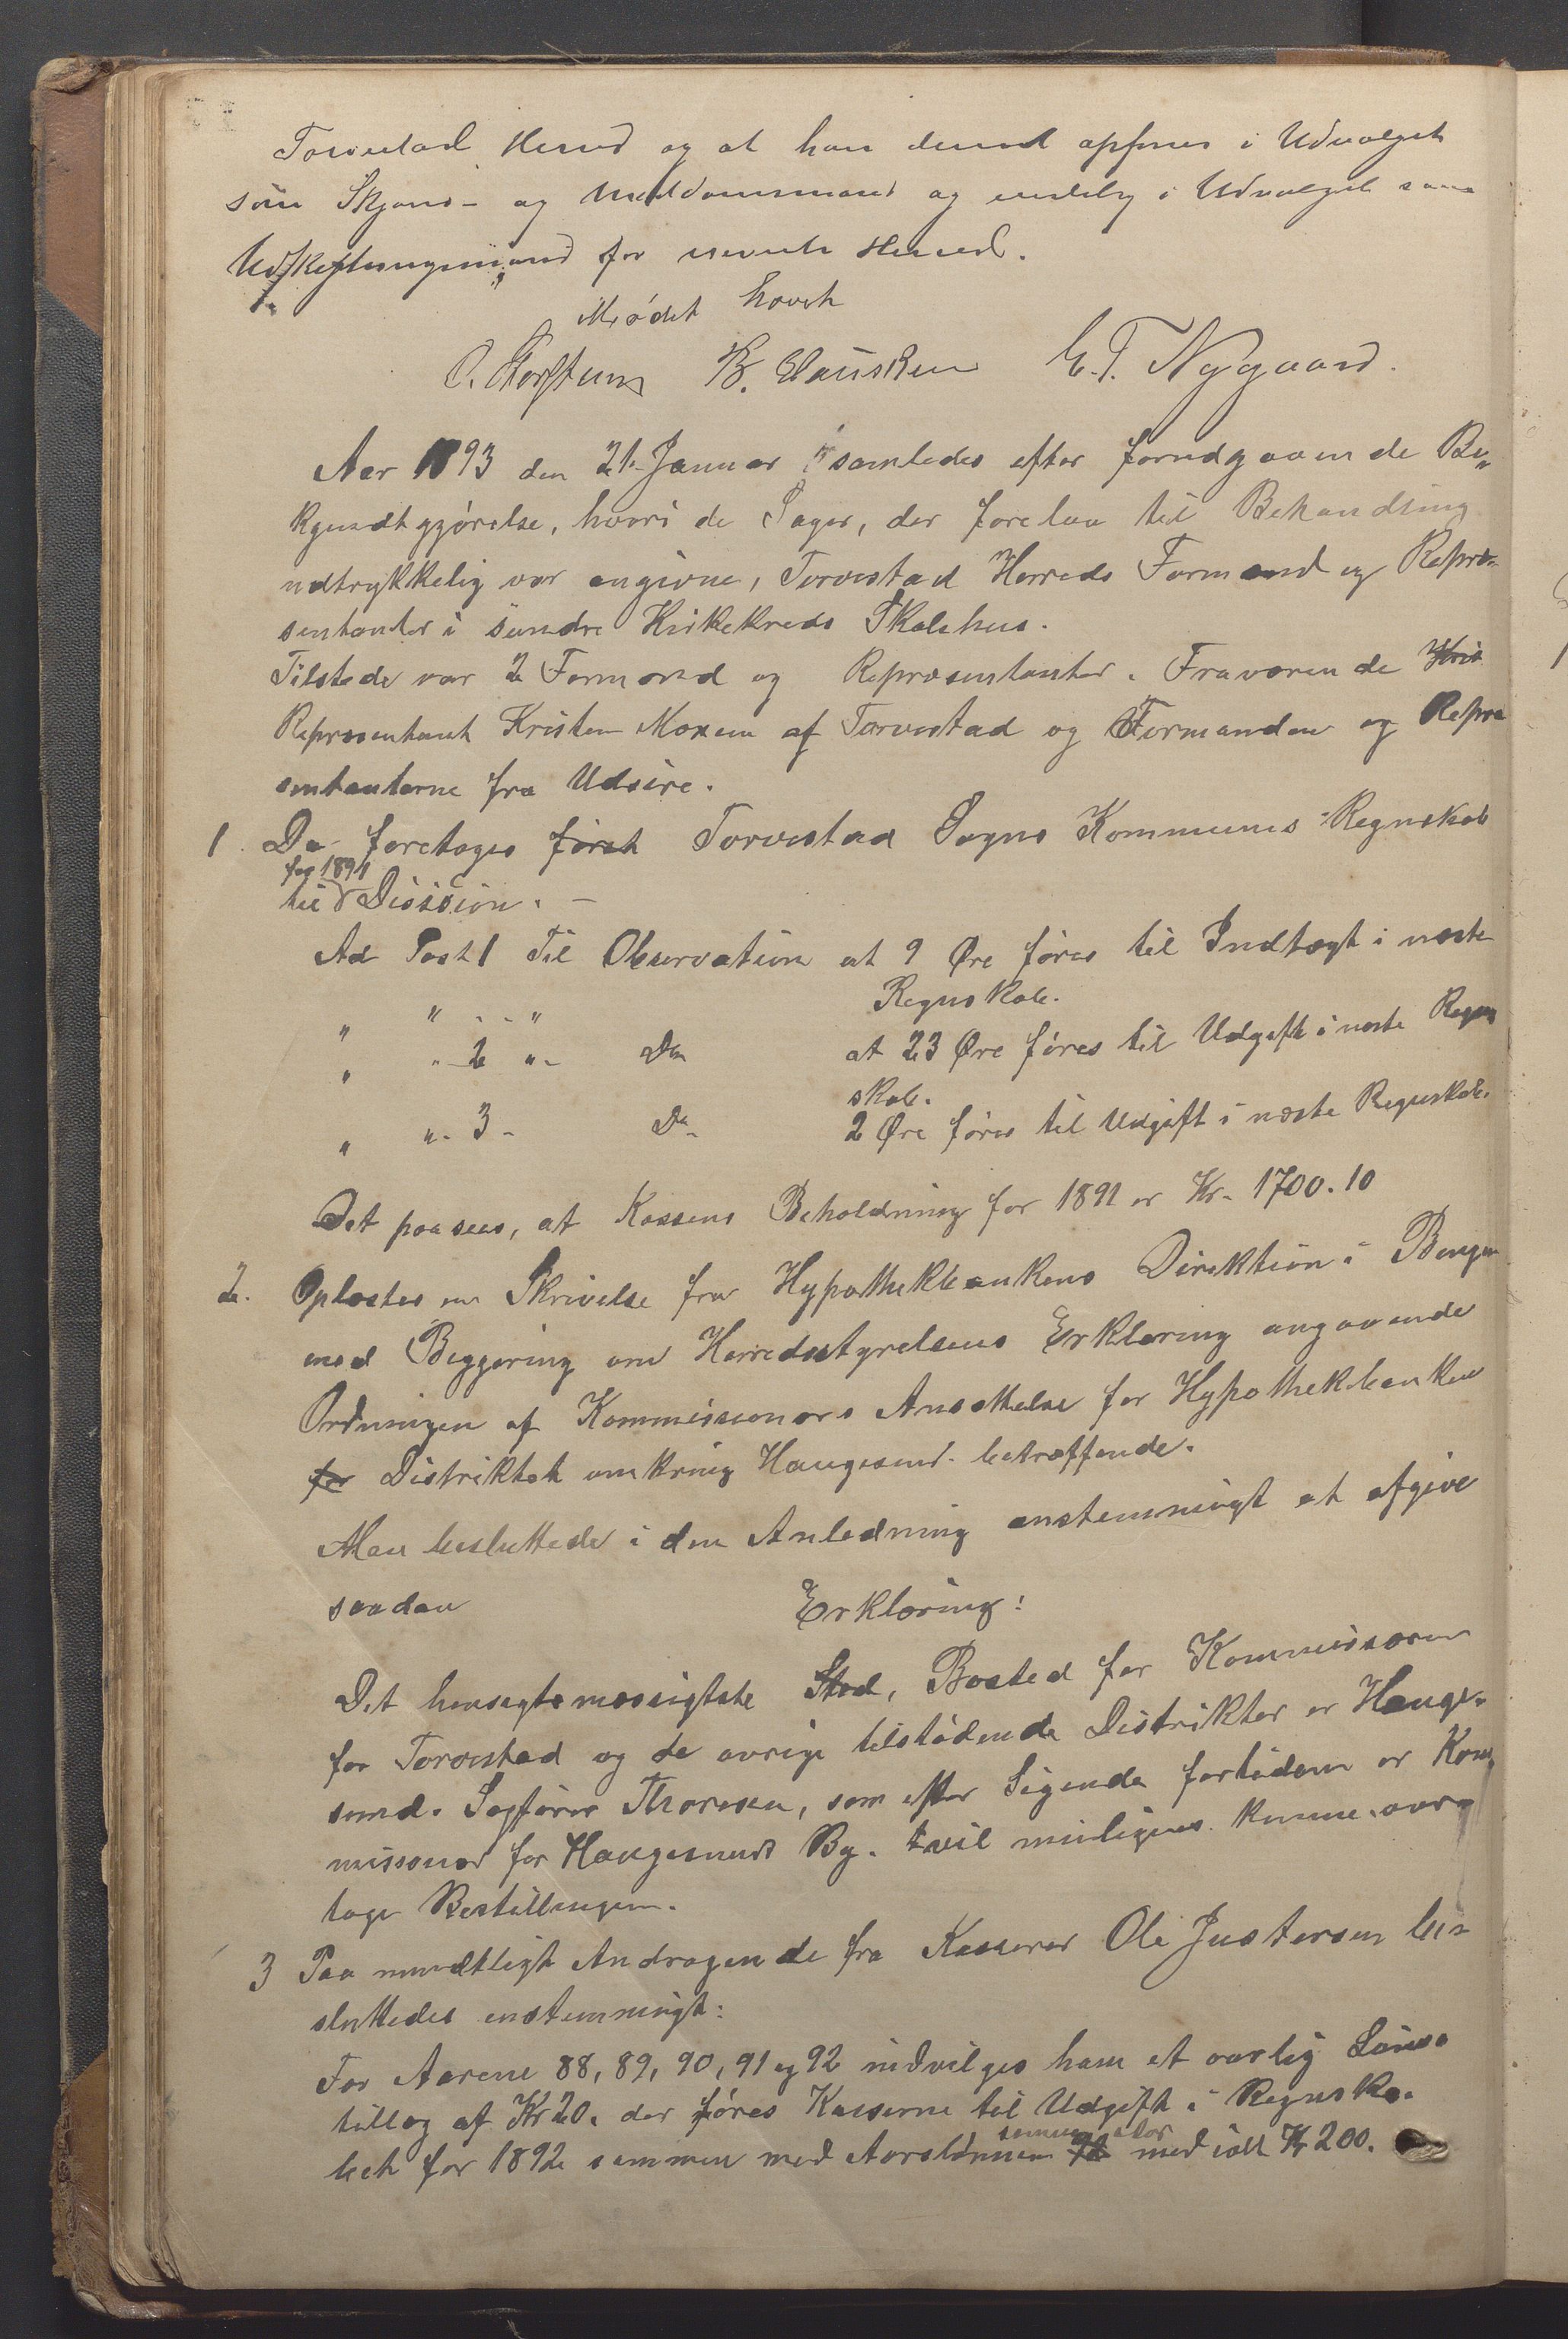 Torvestad Herred og at han derved opføres i Udvalget
som Skjøns- og Meddomsmand og endelig i Udvalget som
Udskiftningsmand for nævnte Herred.
Mødet hævet
O. Storstum B. Clausken E. T. Nygaard.
Aar 1893 den 21. Januar samledes efter forudgaaende Be„
kjendtgjørelse, hvori de Sager, der forelaa til Behandling
udtrykkelig var angivne, Torvestad Herreds Formænd og Repræ-
sentanter i søndre Kirkekreds Skolehus.
Tilstede var 2 Formænd og Repræsentanter. Fraværende Kris
Repræsentant Kristen Moxen af Torvestad og Formanden og Repræ
sentanterne fra Udsire.
1. Da foretoges først Torvestad Sogns Kommunes Regnskab
for 1891
til Dission. -
Ad Post 1 Til Observation at 9 Øre føres til Indtægt i næste
" " - - " Regnskab.
" " - 2 " - Do at 23 Øre føres til Udgift i næste Regn
skab.
" " - 3 - Do - 2 Øre føres til Udgift i næste Regnskab.
Det paasees, at Kassens Beholdning for 1891 er Kr. 1700.10
2. Oplæstes en Skrivelse fra Hypothekbankens Direktion i Bergen
med Beggjæring om Herredsstyrelsens Erklæring angaaende
Ordningen af Kommissionærs Ansættelse for Hypothekbanken
for Distriktet omkring Haugesund betræffende.
Man besluttede i den Anledning enstemmigt at afgive
saadan Erklæring:
Det hensigtsmæssigtste Sted, Bosted for Kommissæren
for Torvestad og de øvrige tilstødende Distrikter er Hauge-
sund. Sagfører Thoresen, som efter Sigende fortiden er Kom„
missonær for Haugesunds By. vil muligens kunne over
tage Bestillingen.
3 Paa mundtligt Andragende fra Kasserer Ole Justersen be-
sluttedes enstemmigt:
For Aarene 88, 89, 90, 91 og 92 indvilges ham et aarlig Løns-
tillæg af Kr 20. der føres Kasserne til Udgift i Regnska-
bet for 1892 sammen med Aarslønnen med ialt Kr 200.